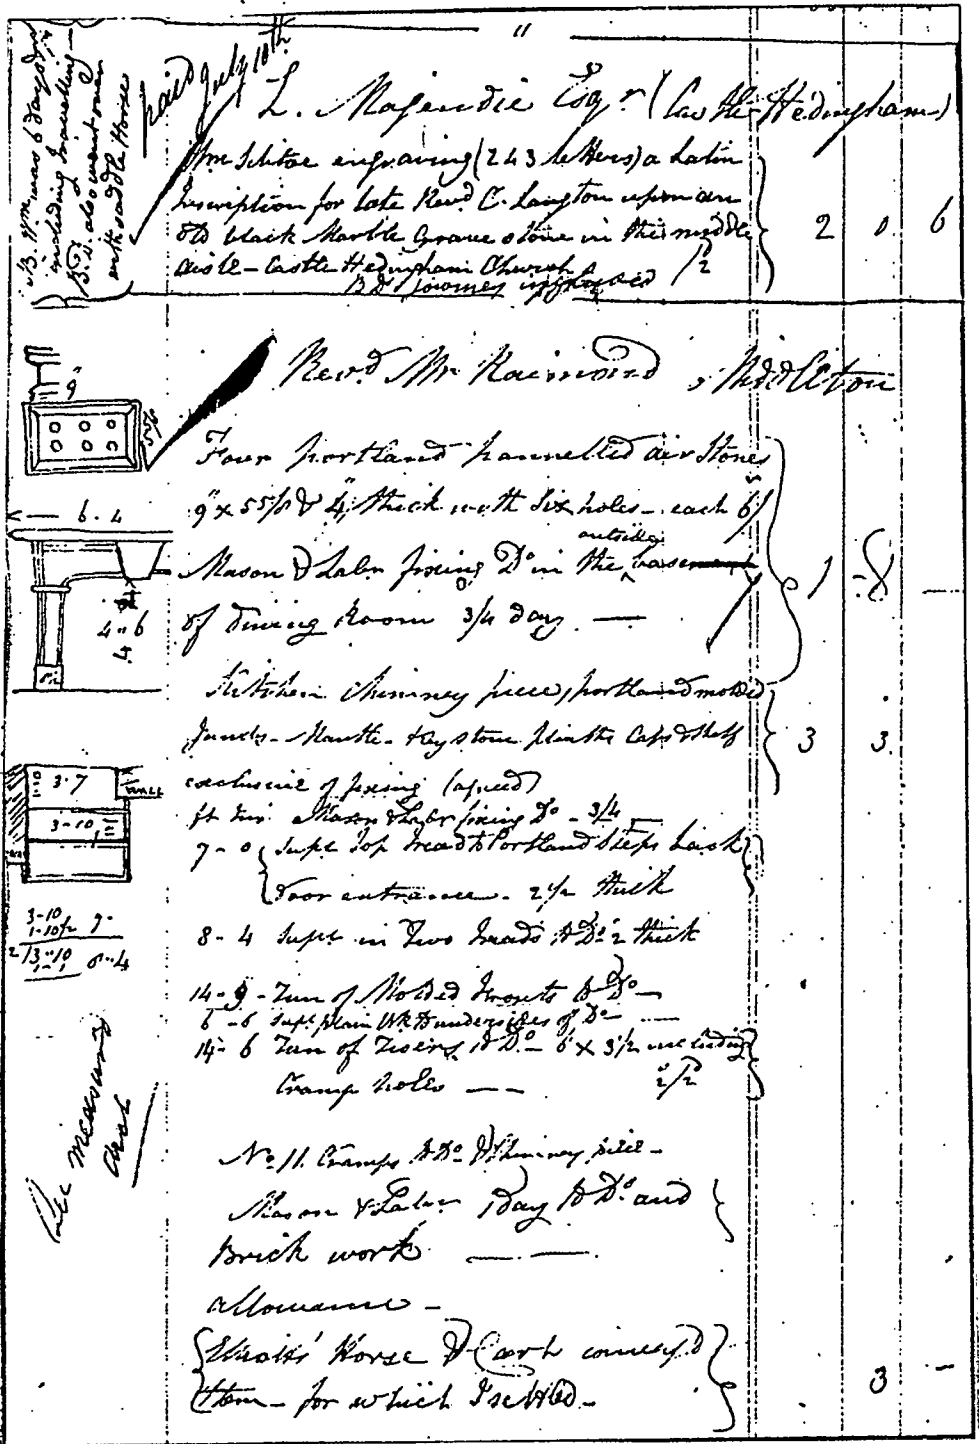 11
N.B. Wm was 6 days
including travelling
B.D. also went over
with saddle Horse
paid July 10th
L. Majendie Esqr (Castle Hedingham)
Wm Steltoe engraving (243 letters) a Latin
Inscription for late Revd. C. Langton upon an
old black Marble Grave stone in the middle
aisle - Castle Hedingham Church
2d
2 0 6
BD Journey
Revd Mr Raimond Middleton
9"
5 5/8
Four portland pannelled air Stones
9" x 5 5/8 & 4" thick with six holes - each 6/
outside
Mason & Labr fixing Do in the basement
of Dining Room 3/4 day —
1 - 8 —
6 . 4
4 - 6
Kitchen chimney piece, portland molded
Jambs - Mantle - Keystone plinths Caps & Shelf
exclusive of fixing (agreed)
3 3
3 . 7
WALL
3 - 10
ft in Mason & Labr fixing Do - 3/4
7 - 0 Supl Top tread to Portland Steps back
door entrance - 2 1/2 thick
3-10
1-10 1/2
8 - 4 Supl in Two treads to Do 2 thick
14 - 9 - Run of Molded fronts to Do —
6 - 6 Supl plain Wk to undersides of Do —
14 - 6 Run of Risers to Do - 6 x 3 1/2 including
Cramp holes — 2/2
See measured
No 11 Cramps to Do & Chimney piece -
Mason & Labr 1 day to Do and
Brick work —
allowance -
Horse & Cart convey'd
them - for which I settled -
3 -